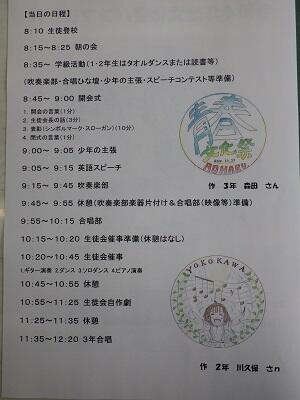 【当日の日程】
8:10 生徒登校
8:15～8:25 朝の会
8:35～ 学級活動(1・2年生はタオルダンスまたは読書等)
(吹奏楽部・合唱ひな壇・少年の主張・スピーチコンテスト等準備)
8:45～ 9:00 開会式
1. 開会の言葉(1分)
2. 生徒会長の話(3分)
3. 表彰(シンボルマーク・スローガン)(10分)
4. 閉式の言葉(1分)
9:00～ 9:05 少年の主張
9:05～ 9:15 英語スピーチ
9:15～ 9:45 吹奏楽部
作 3年 森田 さん
9:45～ 9:55 休憩(吹奏楽部楽器片付け&合唱部(映像等)準備)
9:55～10:15 合唱部
10:15～10:20 生徒会催事準備(休憩はなし)
10:20～10:45 生徒会催事
1.ギター演奏 2.ダンス 3.ソロダンス 4.ピアノ演奏
10:45～10:55 休憩
YOKOKAWA
10:55～11:25 生徒会自作劇
11:25～11:35 休憩
11:35～12:20 3年合唱
作 2年 川久保 さn